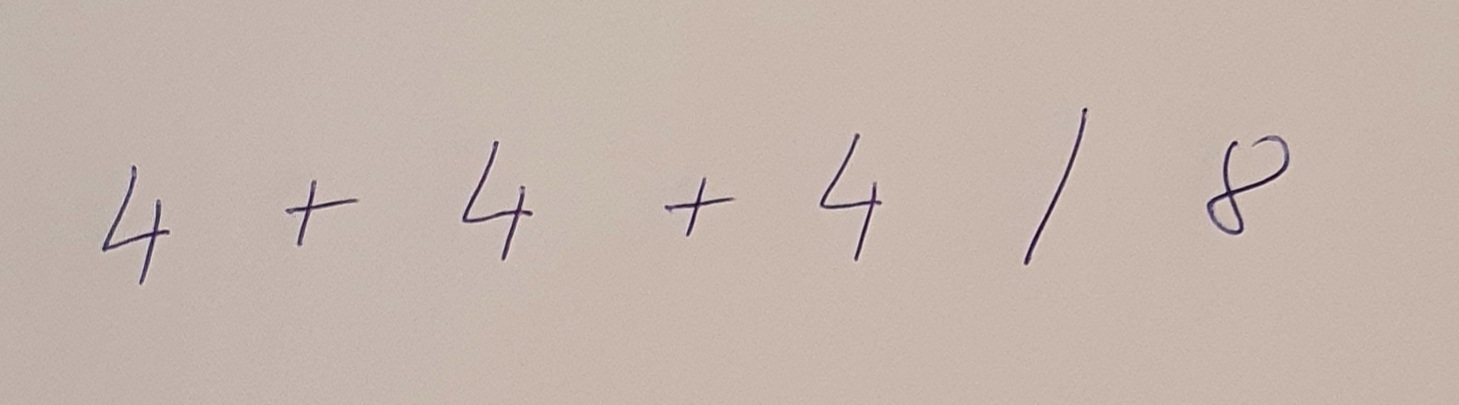 4 + 4 + 4 / 8